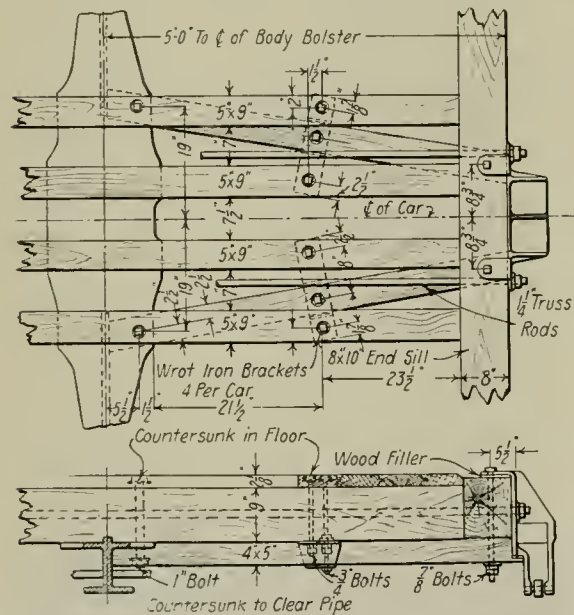 5'-0" To ℄ of Body Bolster
1½"
2"
5"x9"
7"
19"
5"x9"
2½"
7½"
℄ of Car
8¾"
5"x9"
8¾"
8"
19"
2½"
2½"
7"
5"x9"
1¼" Truss
Rods
Wrot Iron Brackets
4 Per Car
8"x10" End Sill
23½"
8"
5½"
1½"
21½"
Countersunk in Floor
Wood Filler
5½"
9"
4"x5"
1" Bolt
¾" Bolts
⅞" Bolts
Countersunk to Clear Pipe